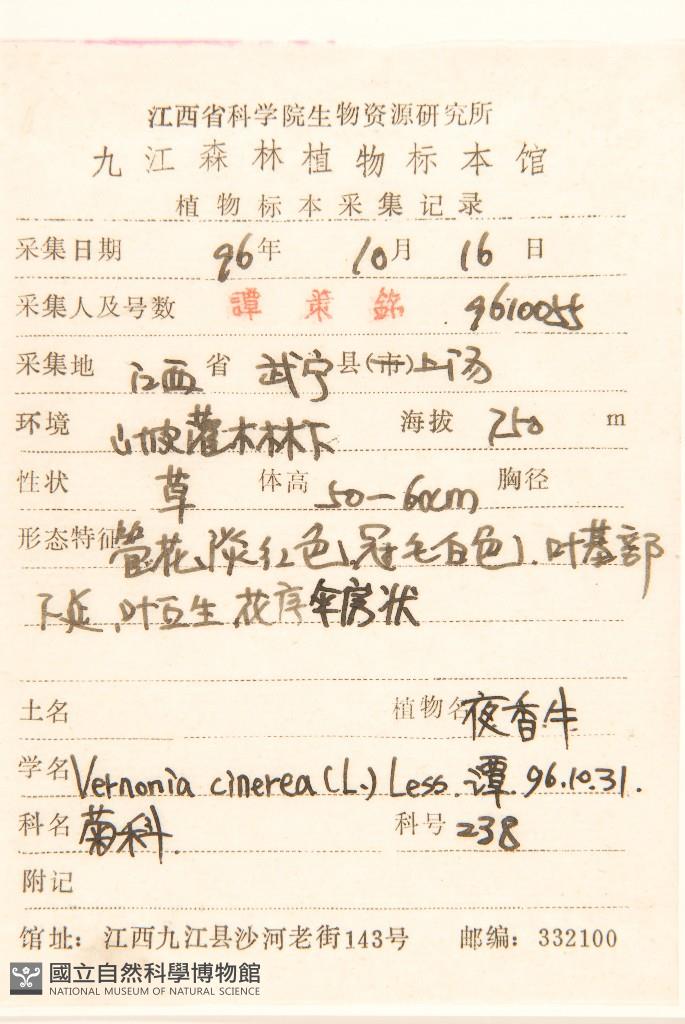 江西省科学院生物资源研究所
九江森林植物标本馆
植物标本采集记录
采集日期 96年 10月 16日
采集人及号数 譚策銘 9610055
采集地 江西省 武宁县(市)上汤
环境 山坡灌木林林下 海拔 750 m
性状 草 体高 50—60cm 胸径
形态特征 管花、淡红色、冠毛白色、叶基部
下延、叶互生、花序伞房状
土名 植物名 夜香牛
学名 Vernonia cinerea (L.) Less. 谭. 96.10.31.
科名 菊科. 科号 238
附记
馆址：江西九江县沙河老街143号 邮编：332100
國立自然科學博物館
NATIONAL MUSEUM OF NATURAL SCIENCE